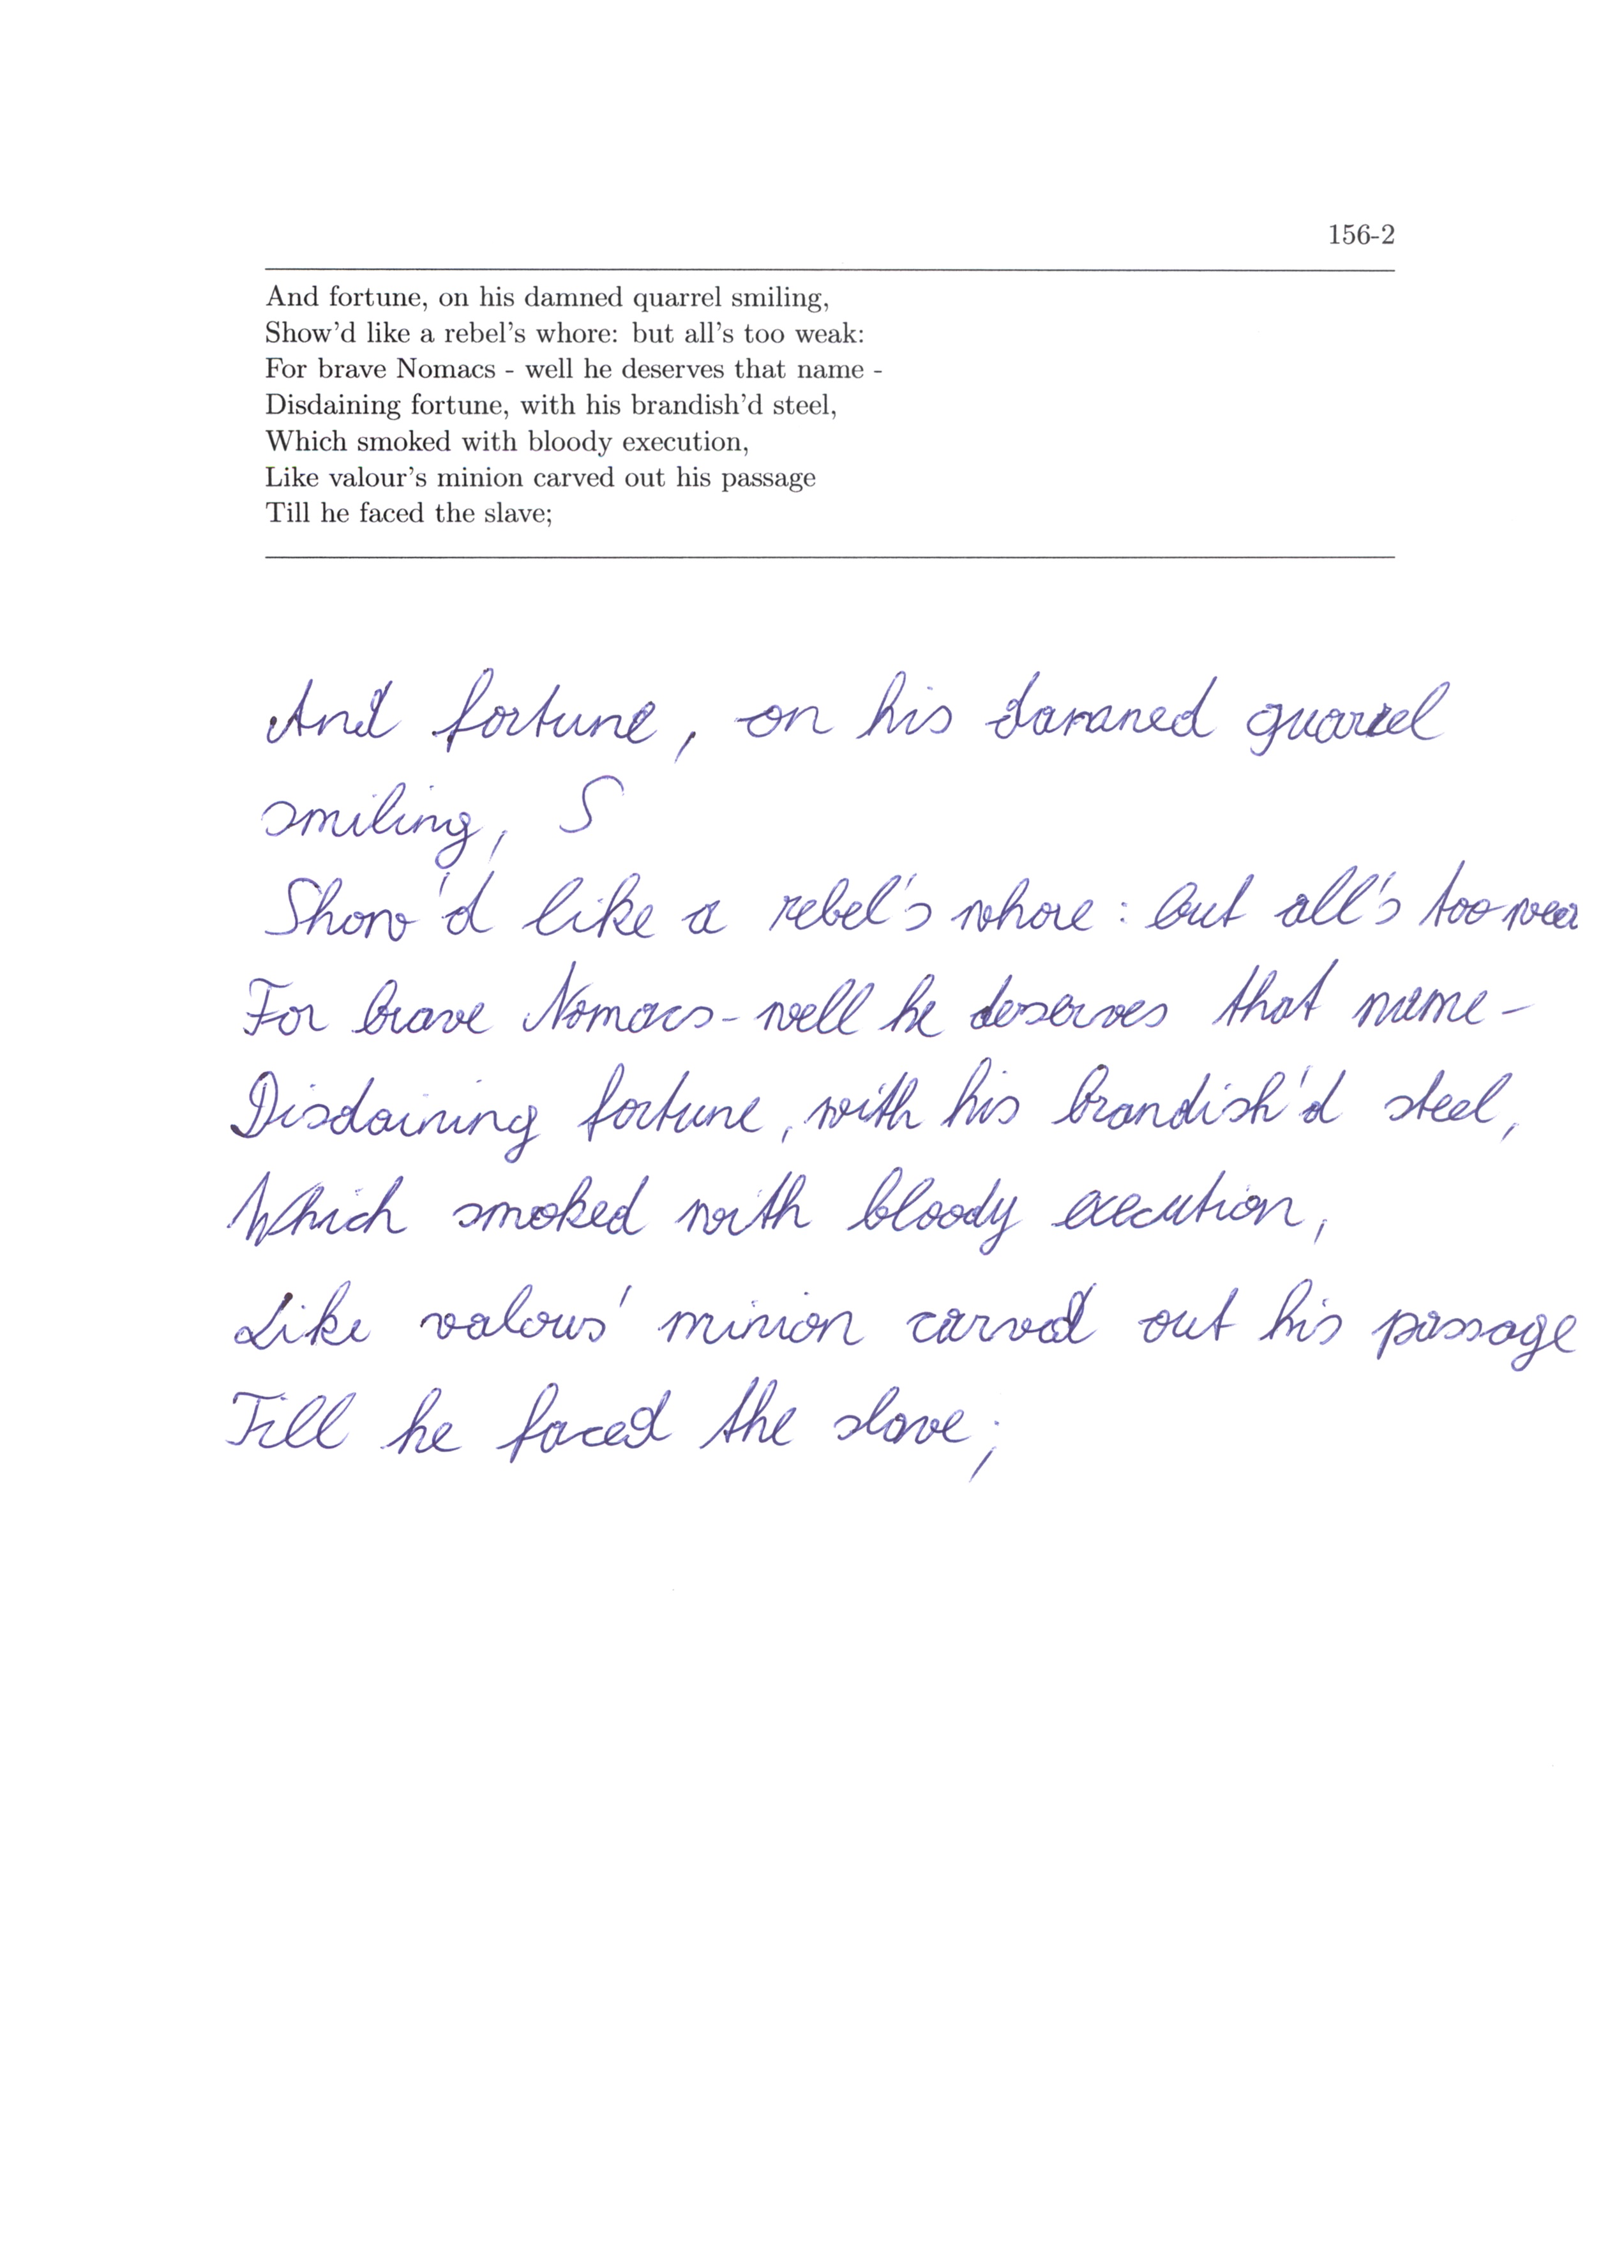 156-2
And fortune, on his damned quarrel smiling,
Show'd like a rebel's whore: but all's too weak:
For brave Nomacs - well he deserves that name -
Disdaining fortune, with his brandish'd steel,
Which smoked with bloody execution,
Like valour's minion carved out his passage
Till he faced the slave;
And fortune, on his damned quarrel
smiling, S
Show'd like a rebel's whore: but all's too wea
For brave Nomacs - well he deserves that name -
Disdaining fortune, with his brandish'd steel,
Which smoked with bloody execution,
Like valous' minion carved out his passage
Till he faced the slave;